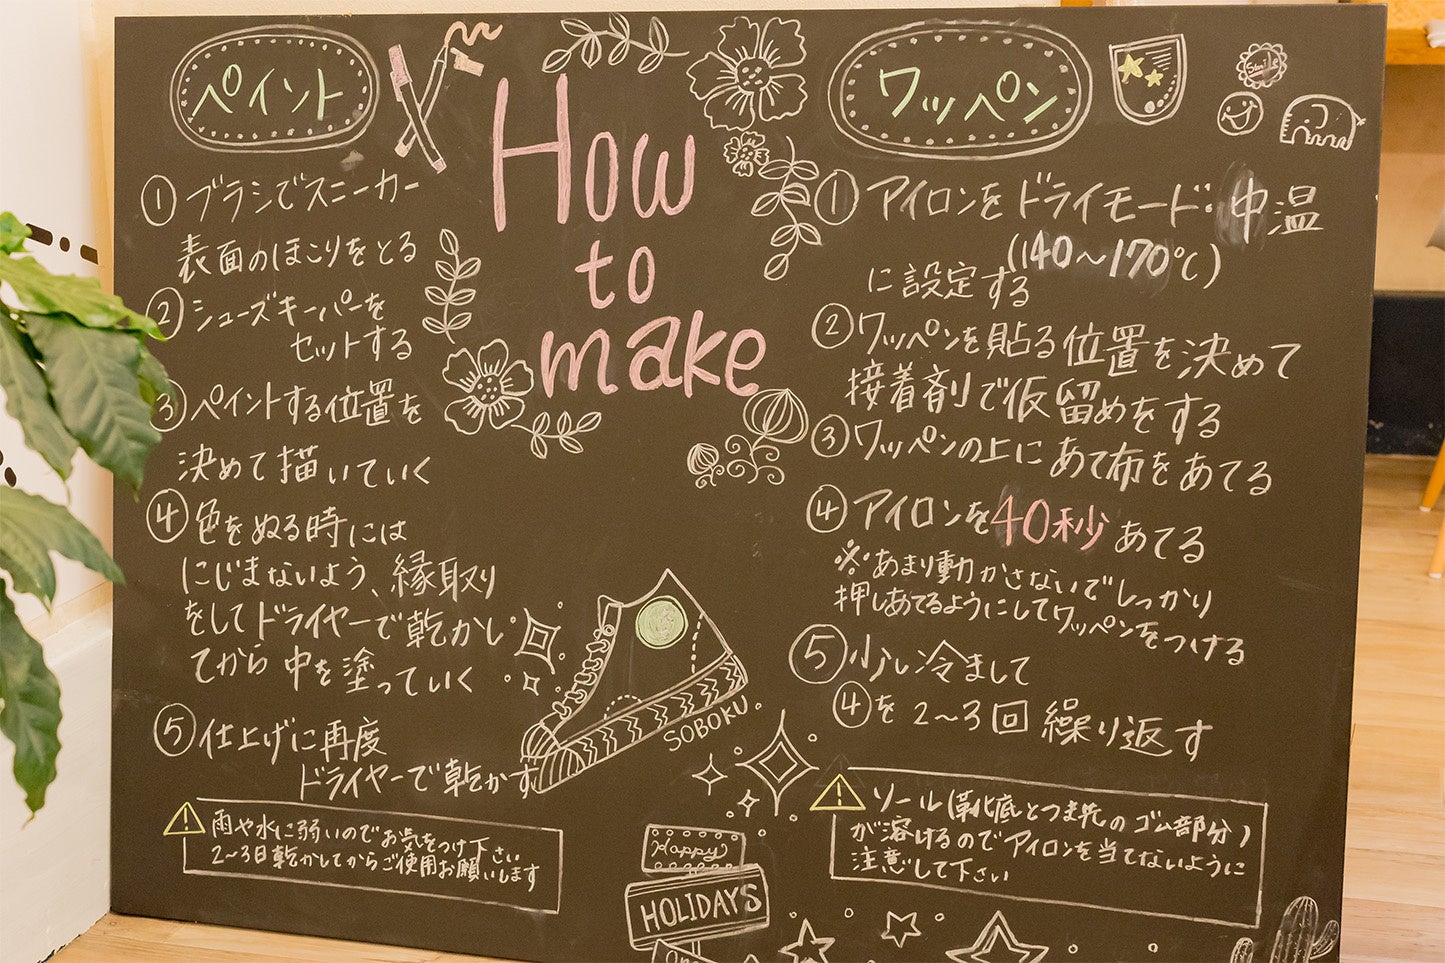 How
to
make
ペイント
①ブラシでスニーカー
表面のほこりをとる
②シューズキーパーを
セットする
③ペイントする位置を
決めて描いていく
④色をぬる時には
にじまないよう、縁取り
をしてドライヤーで乾かし
てから中を塗っていく
⑤仕上げに再度
ドライヤーで乾かす
雨や水に弱いのでお気をつけ下さい
2~3日乾かしてからご使用お願いします
ワッペン
Smile
①アイロンをドライモード:中温
(140~170℃)
に設定する
②ワッペンを貼る位置を決めて
接着剤で仮留めをする
③ワッペンの上にあて布をあてる
④アイロンを40秒あてる
※あまり動かさないでしっかり
押しあてるようにしてワッペンをつける
⑤少し冷まして
④を2~3回繰り返す
ソール(靴底とつま先のゴム部分)
が溶けるのでアイロンを当てないように
注意して下さい
SOBOKU.
Happy
HOLIDAYS